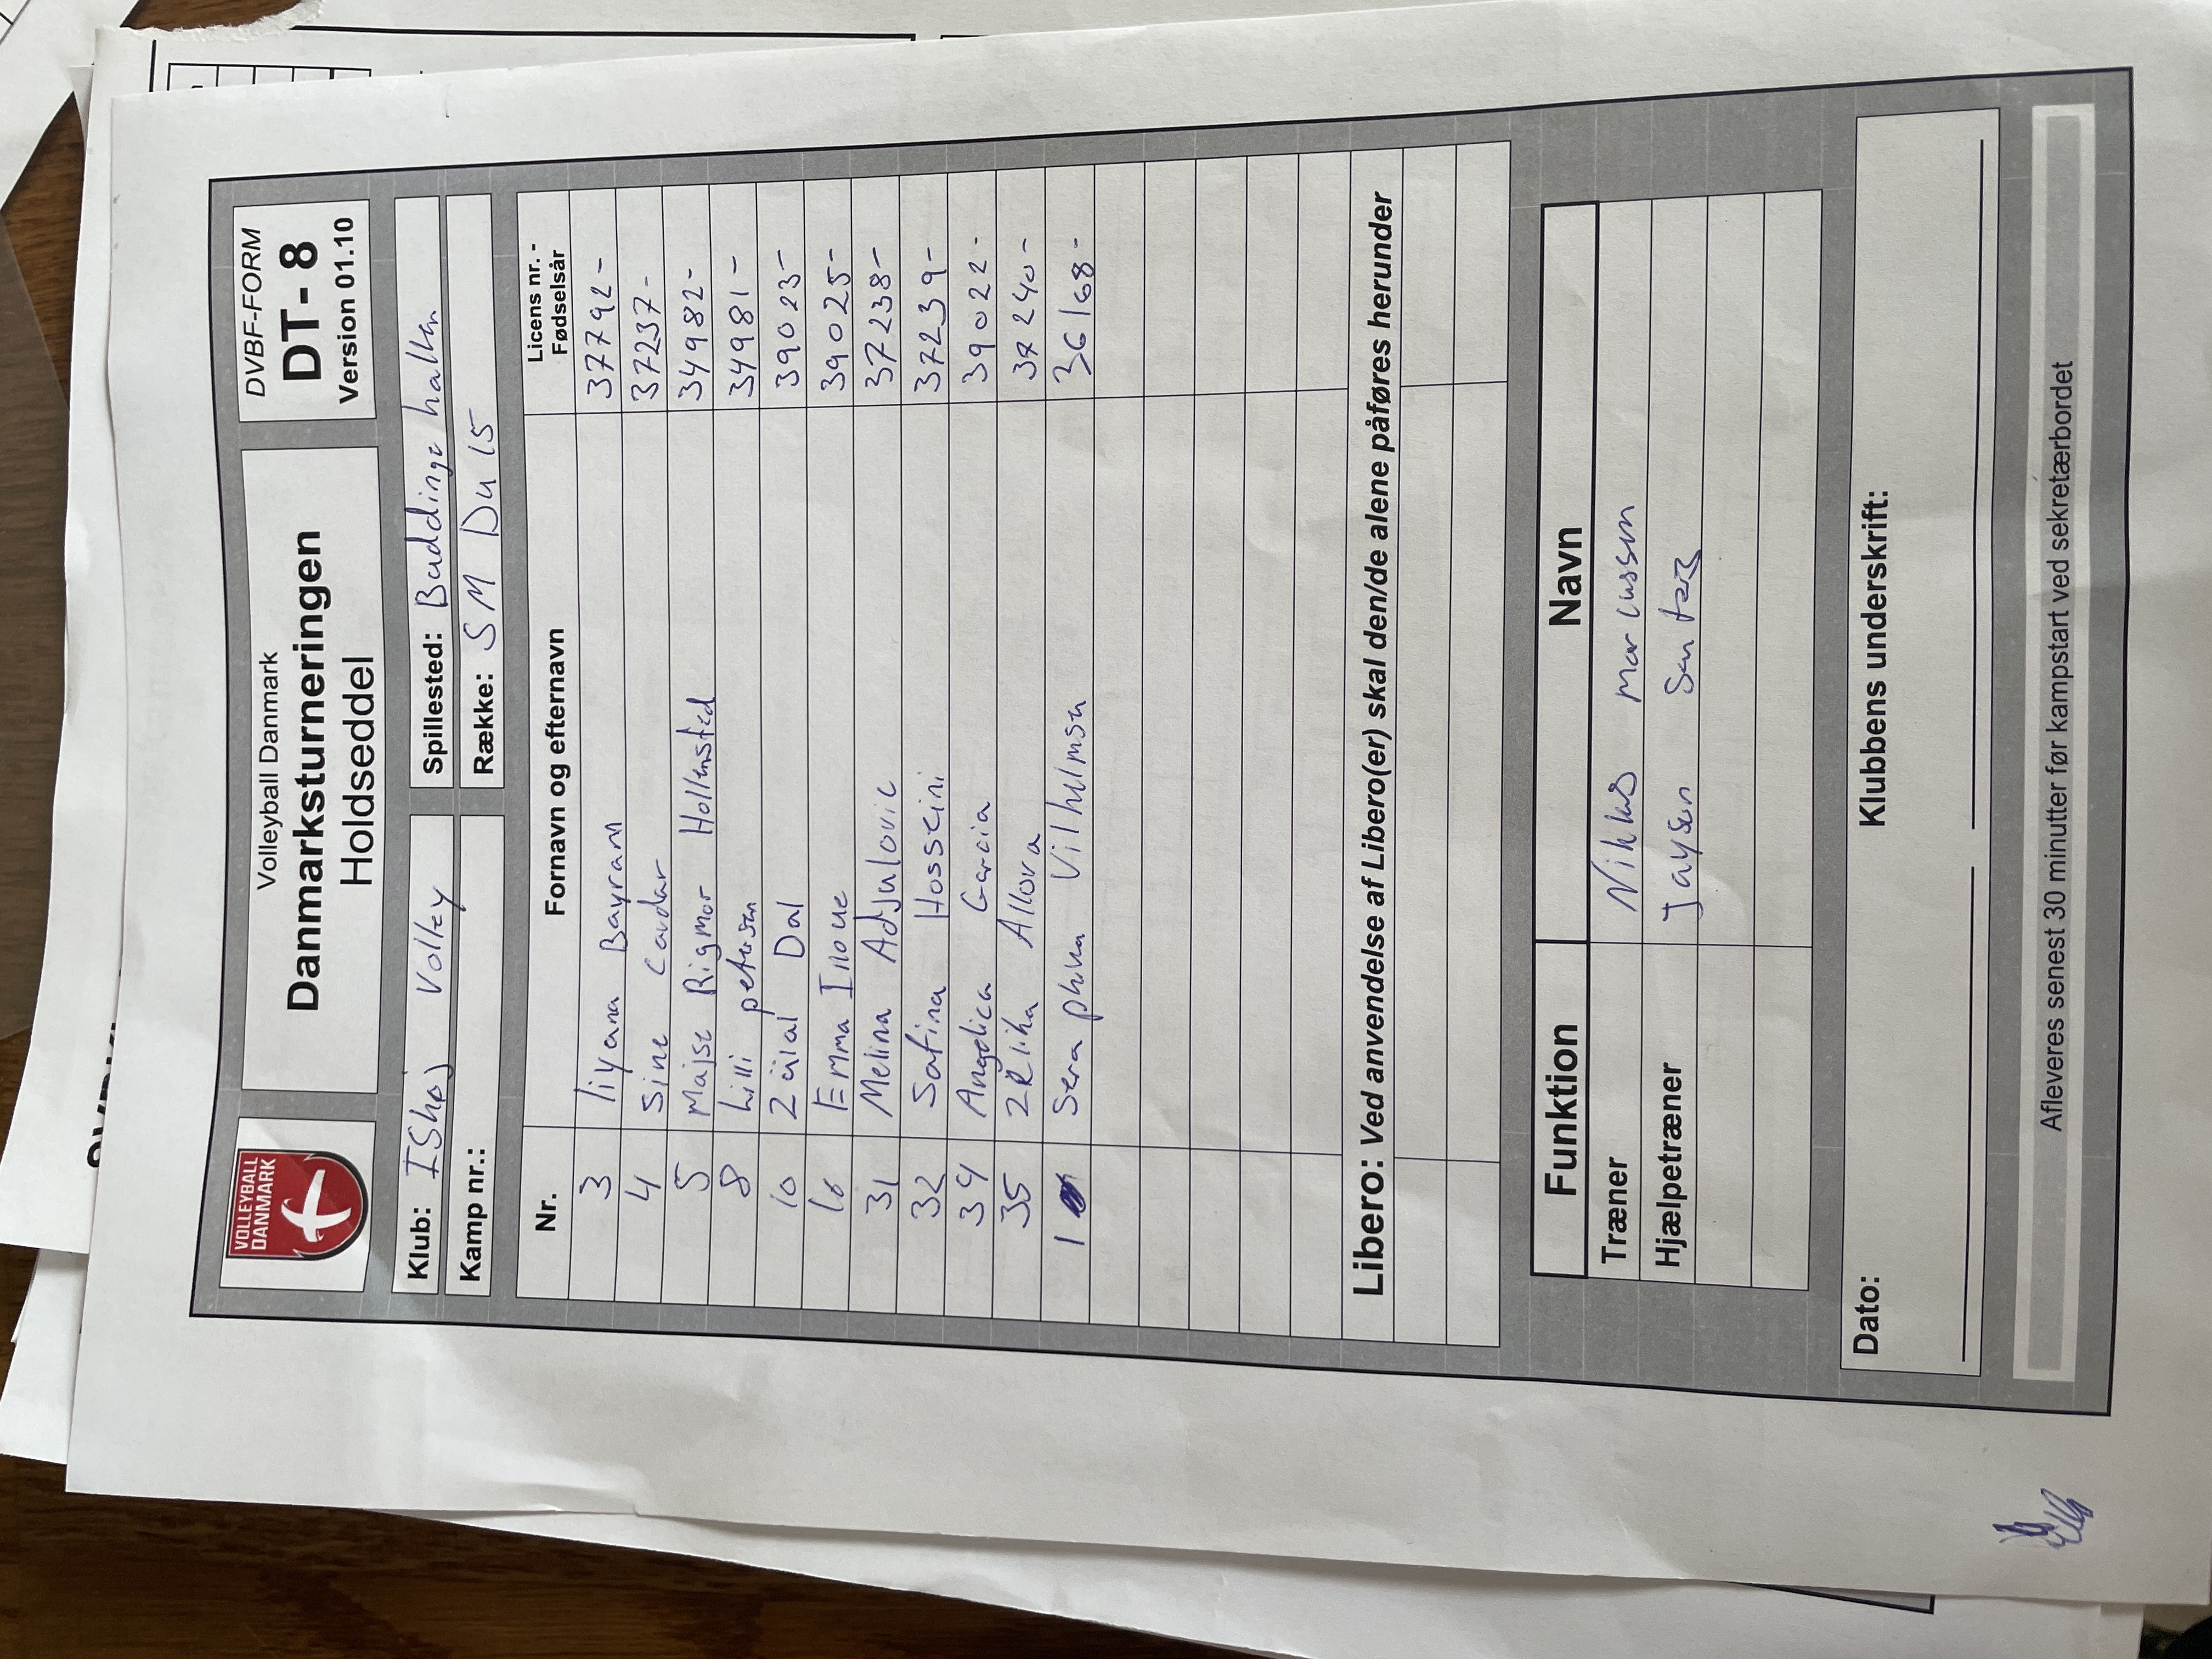 VOLLEYBALL
DANMARK
Volleyball Danmark
Danmarksturneringen
Holdseddel
DVBF-FORM
DT- 8
Version 01.10
Klub: IShøj Volley
Spillested: Buddinge hallen
Kamp nr.:
Række: S M Du 15
Nr. Fornavn og efternavn Licens nr. - Fødselsår
3 liyana Bayram 37792-
4 Sine Candar 37237-
5 Majse Rigmor Hollensted 34982-
8 Lilli petersen 34981-
10 Zülal Dal 39023-
16 Emma Inoue 39025-
31 Melina Adjulovic 37238-
32 Safina Hosseini 37239-
34 Angelica Garcia 39022-
35 Allova 37240-
1 Seraphina Vilhelmsen 36168-
Libero: Ved anvendelse af Libero(er) skal den/de alene påføres herunder
Funktion Navn
Træner Niklas Marcussen
Hjælpetræner Jaysen
Dato:
Klubbens underskrift:
Afleveres senest 30 minutter før kampstart ved sekretærbordet